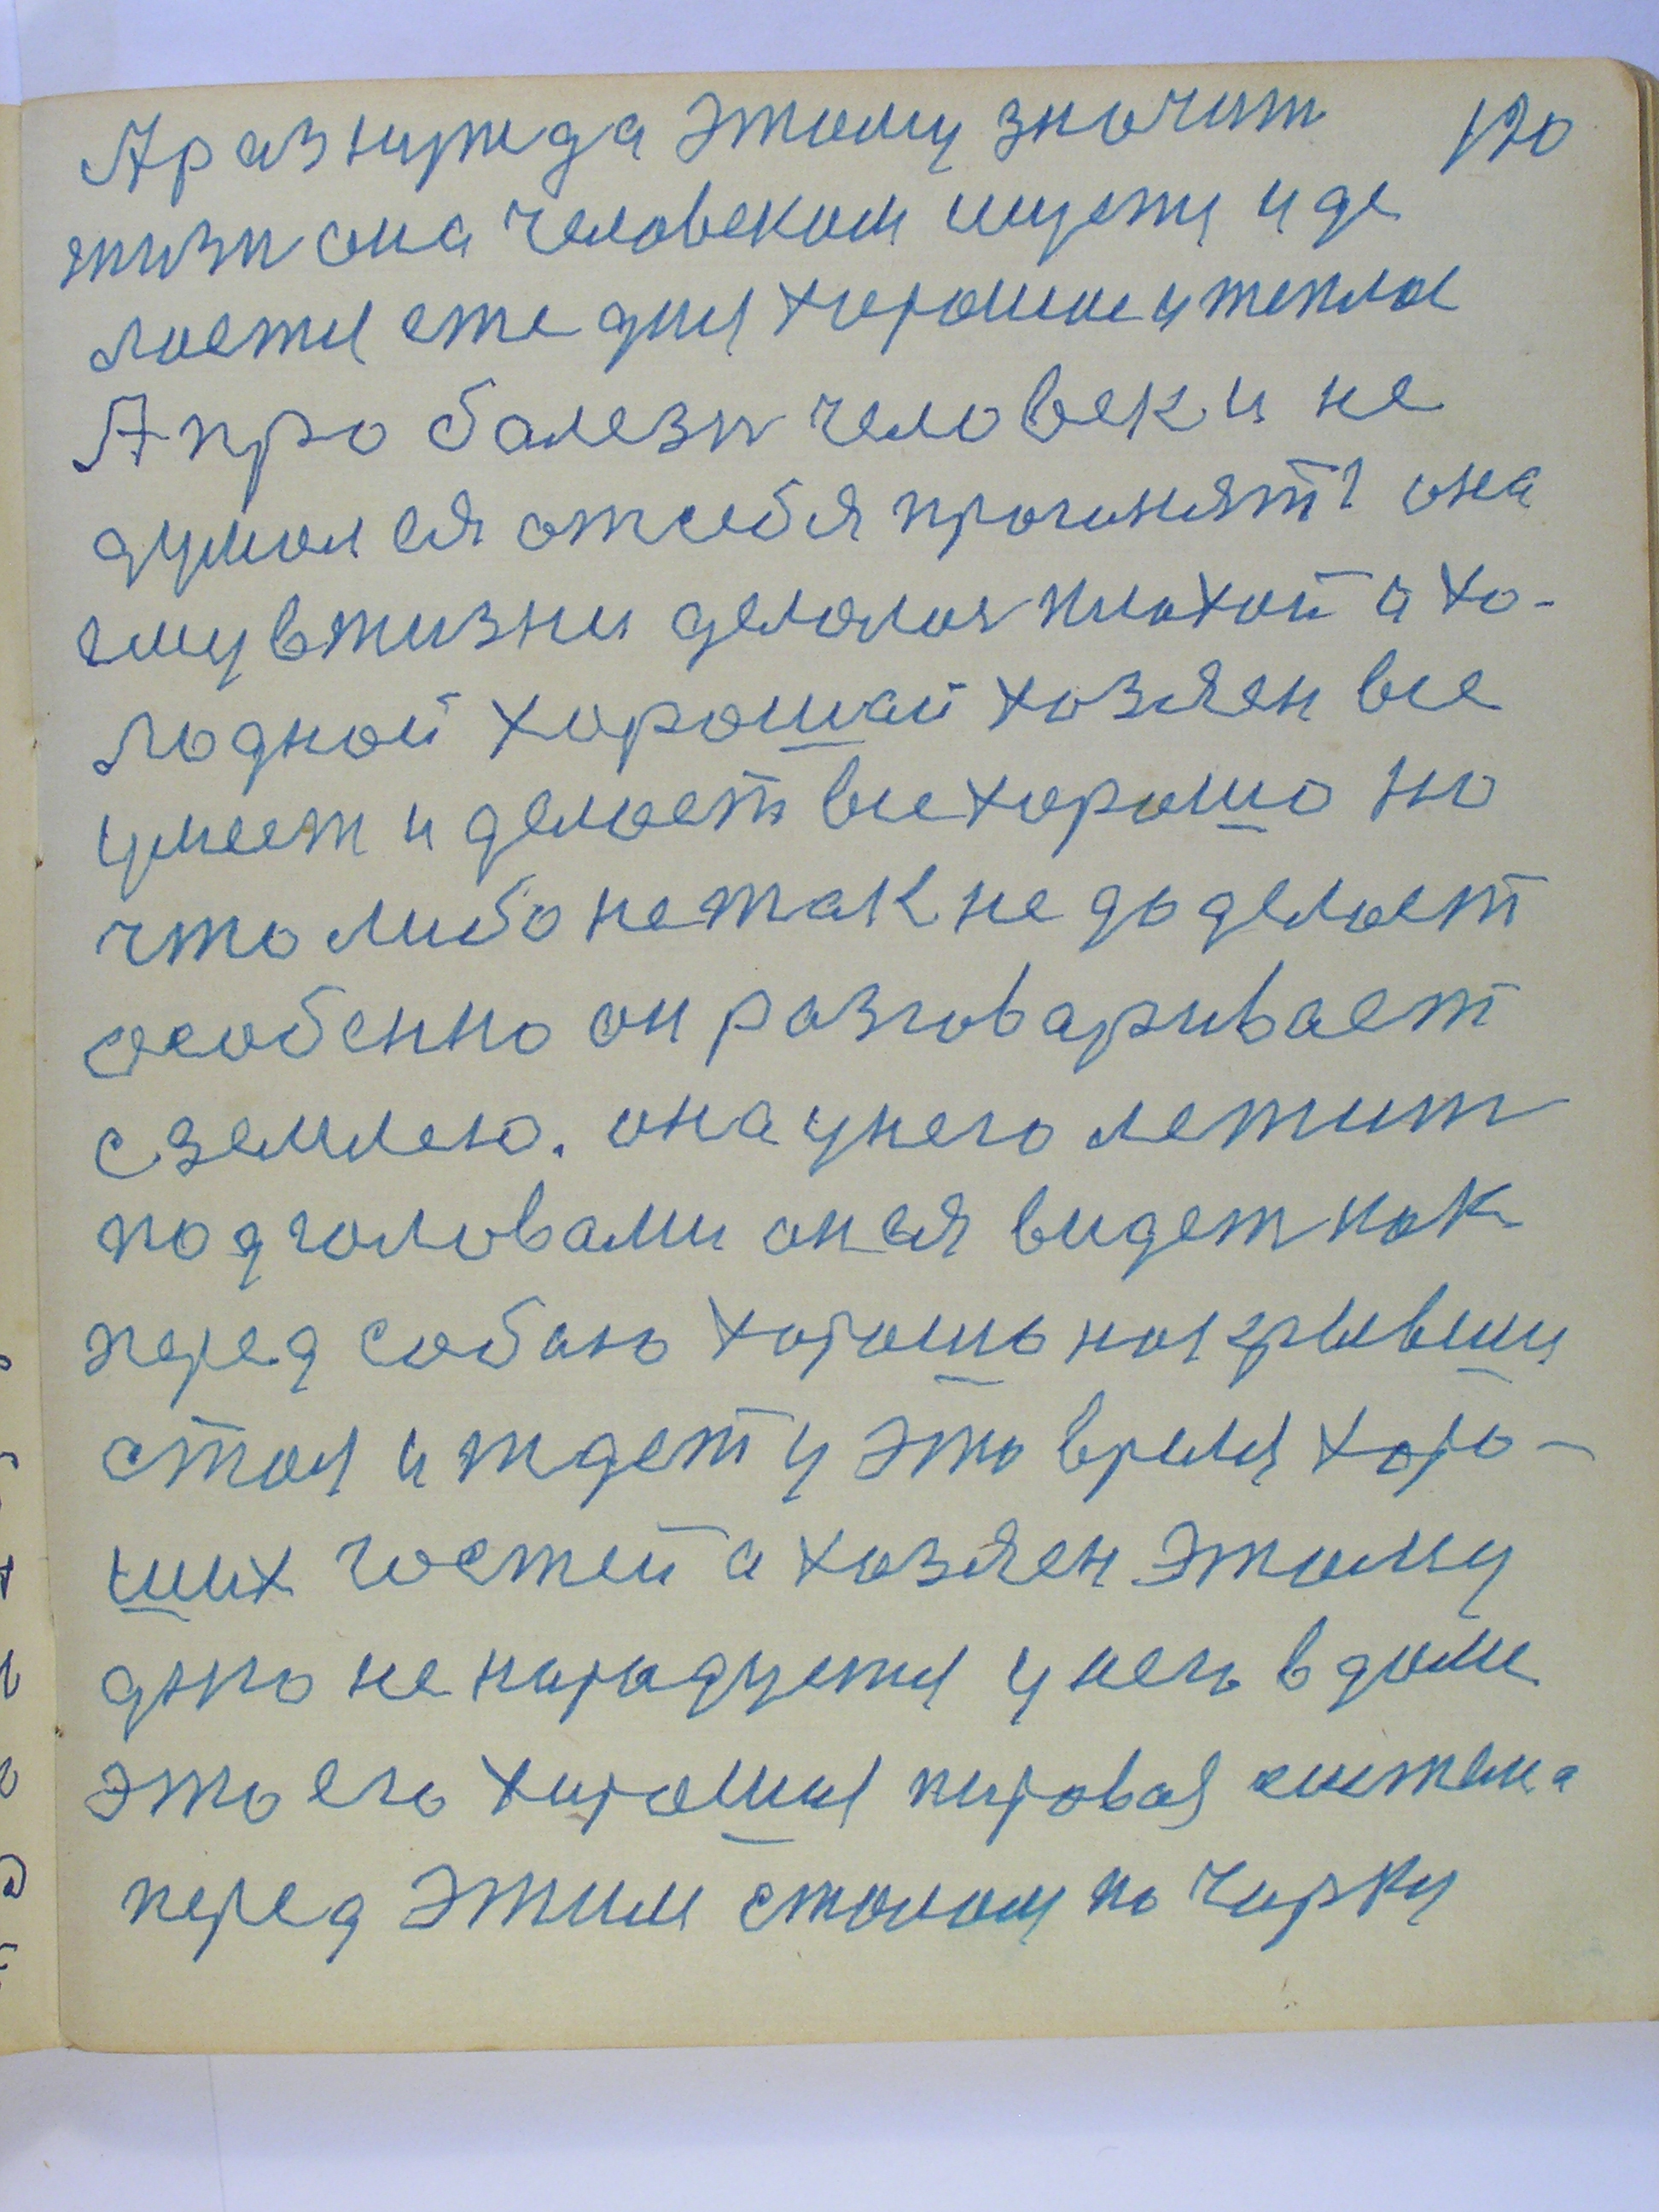 А раз нужда этому значит 120
жизн она человеком ищетц и де
лоетц еже днц хорошое и теплое
А про болезн человек и не
думол ея от себя прогонят? она
ему в жизни делолос плохой и хо-
лодной хорошай хозяен все
умеет и делоет все хорошо но
что либо не так не доделоет
особенно он разговаривает
с землею. она у него лежит
под головами он ея видет как
перед собою хорошо накрывши
стол и ждет у это времц хоро-
ших гостей а хозяен этому
дню не нарадуетц у него в доме
это его хорошоц пировая система
перед этим столом по чарки